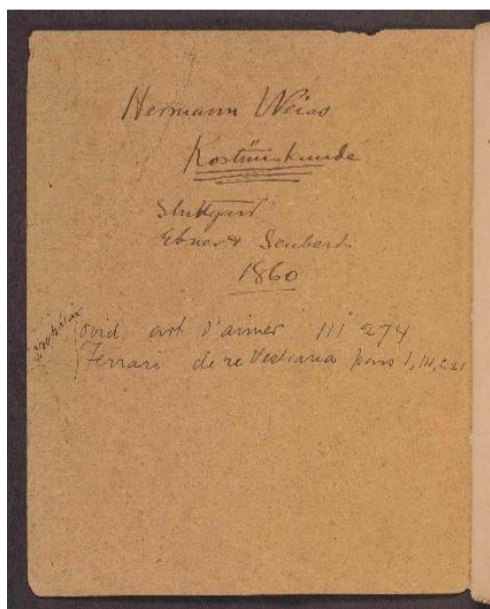 Hermann Weiss
Kostümkunde
Stuttgart
Ebner & Seubert
1860
Ovid art d'aimer III 274
Ferrari de re Vestiaria pars 1, IV, c 21